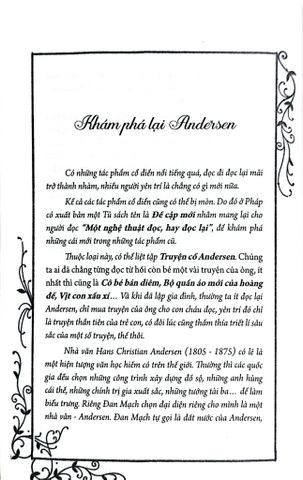 Khám phá lại Andersen
Có những tác phẩm cổ điển nổi tiếng quá, đọc đi đọc lại mãi
trở thành nhàm, nhiều người yên trí là chẳng có gì mới nữa.
Kể cả các tác phẩm cổ điển cũng có thể bị mòn. Do đó ở Pháp
có xuất bản một Tủ sách tên là Đề cập mới nhằm mang lại cho
người đọc "Một nghệ thuật đọc, hay đọc lại", để khám phá
những cái mới trong những tác phẩm cũ.
Thuộc loại này, có thể liệt tập Truyện cổ Andersen. Chúng
ta ai đã chẳng từng đọc từ hồi còn bé một vài truyện của ông, ít
nhất thì cũng là Cô bé bán diêm, Bộ quần áo mới của hoàng
đế, Vịt con xấu xí... Và khi đã lập gia đình, thường ta ít đọc lại
Andersen, chỉ mua truyện của ông cho con cháu đọc, yên trí đó chỉ
là truyện thần tiên của trẻ con, có đôi lúc cũng thấm thía triết lí sâu
sắc của một số truyện, thế thôi.
Nhà văn Hans Christian Andersen (1805 - 1875) có lẽ là
một hiện tượng văn học hiếm có trên thế giới. Thường thì các quốc
gia đều chọn những công trình xây dựng đồ sộ, những anh hùng
cái thế, những chính trị gia xuất sắc, những tướng tài ba... để làm
biểu trưng. Riêng Đan Mạch chọn đại diện riêng cho mình là một
nhà văn - Andersen. Đan Mạch tự gọi là đất nước của Andersen,